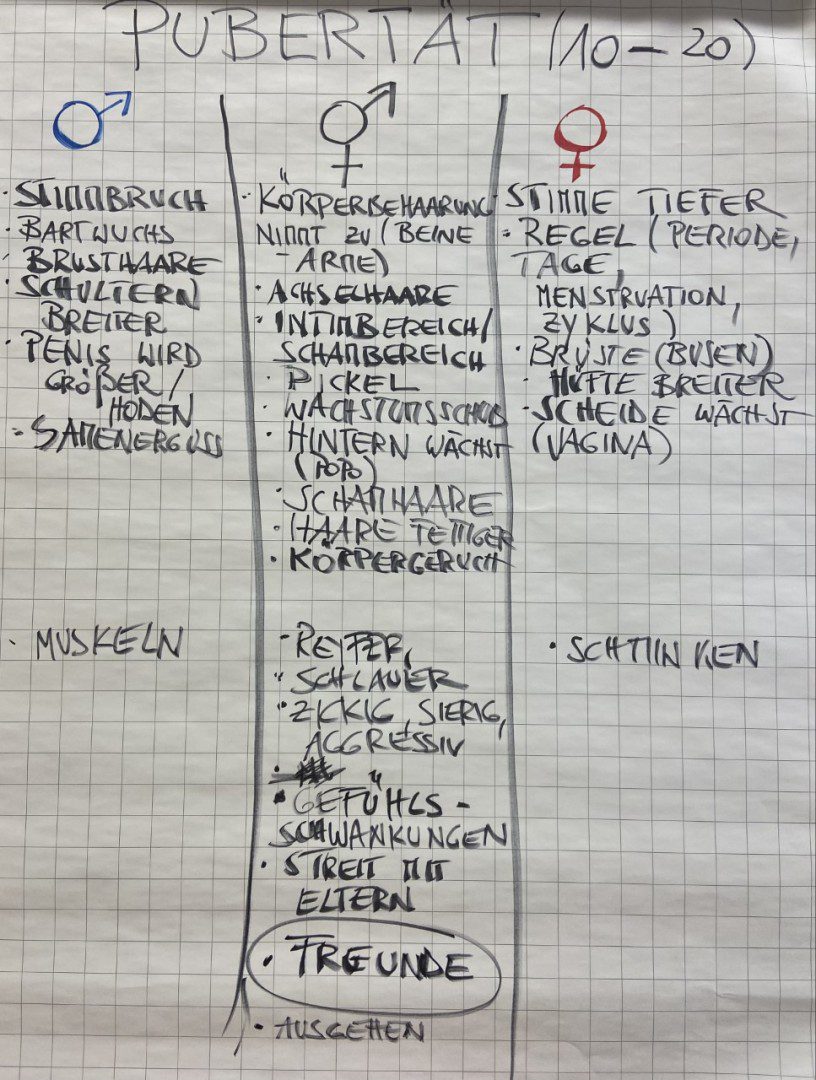 PUBERTÄT (10-20)
· STIMMBRUCH
· BARTWUCHS
· BRUSTHAARE
· SCHULTERN
BREITER
· PENIS WIRD
GRÖßER /
HODEN
· SAMENERGUSS
· MUSKELN
· KÖRPERBEHAARUNG
NIMMT ZU (BEINE
- ARME)
· ACHSELHAARE
· INTIMBEREICH/
SCHAMBEREICH
· PICKEL
· WACHSTUMSSCHUB
· HINTERN WÄCHST
(POPO)
· SCHAMHAARE
· HAARE FETTIGER
· KÖRPERGERUCH
- REIFER,
· SCHLAUER
· ZICKIG,
AGGRESSIV
· GEFÜHLS-
SCHWANKUNGEN
· STREIT MIT
ELTERN
· FREUNDE
· AUSGEHEN
· STIMME TIEFER
· REGEL (PERIODE,
TAGE,
MENSTRUATION,
ZYKLUS)
· BRÜSTE (BUSEN)
· HÜFTE BREITER
· SCHEIDE WÄCHST
(VAGINA)
· SCHMINKEN